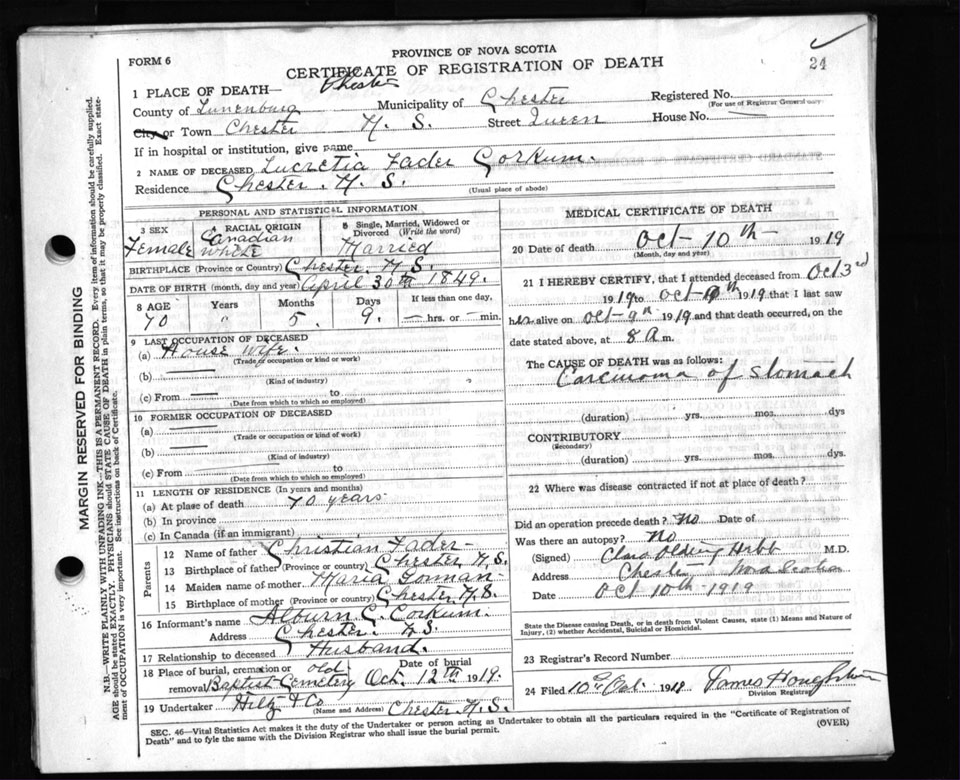 PROVINCE OF NOVA SCOTIA
FORM 6
CERTIFICATE OF REGISTRATION OF DEATH
24
1 PLACE OF DEATH— Chester
County of Lunenburg Municipality of Chester Registered No.
(For use of Registrar General only)
City or Town Chester N. S. Street Queen House No. —
If in hospital or institution, give name
2 NAME OF DECEASED Lucretia Fader Corkum.
Residence Chester. N. S. (Usual place of abode)
PERSONAL AND STATISTICAL INFORMATION
3 SEX
Female
RACIAL ORIGIN
Canadian
White
5 Single, Married, Widowed or
Divorced (Write the word)
Married
BIRTHPLACE (Province or Country) Chester. N. S.
DATE OF BIRTH (month, day and year) April 30th 1849.
8 AGE Years Months Days If less than one day,
70 " 5. 9. — hrs. or — min.
9 LAST OCCUPATION OF DECEASED
(a) House wife.
(Trade or occupation or kind of work)
(b) —
(Kind of industry)
(c) From — to
(Date from which to which so employed)
10 FORMER OCCUPATION OF DECEASED
(a) —
(Trade or occupation or kind of work)
(b) —
(Kind of industry)
(c) From — to
(Date from which to which so employed)
11 LENGTH OF RESIDENCE (In years and months)
(a) At place of death 70 years
(b) In province
(c) In Canada (if an immigrant)
Parents
12 Name of father Christian Fader
13 Birthplace of father (Province or country) Chester N. S.
14 Maiden name of mother Maria Gorman
15 Birthplace of mother (Province or country) Chester N. S.
16 Informant's name Alburn C. Corkum.
Address Chester. N. S.
17 Relationship to deceased Husband.
18 Place of burial, cremation or removal old Baptist Cemetery Date of burial Oct. 12th 1919.
19 Undertaker Hiltz & Co (Name and Address) Chester N. S.
MEDICAL CERTIFICATE OF DEATH
20 Date of death Oct- 10th- 1919
(Month, day and year)
21 I HEREBY CERTIFY, that I attended deceased from Oct 3rd
1919 to Oct 10th 1919 that I last saw
her alive on Oct 9th 1919 and that death occurred, on the
date stated above, at 8 A m.
The CAUSE OF DEATH was as follows:
Carcinoma of Stomach
(duration) yrs. mos. dys
CONTRIBUTORY
(Secondary)
(duration) yrs. mos. dys.
22 Where was disease contracted if not at place of death?
Did an operation precede death? No Date of
Was there an autopsy? No
(Signed) Clara Olding Hebb M.D.
Address Chester Nova Scotia
Date Oct 10th 1919
State the Disease causing Death, or in death from Violent Causes, state (1) Means and Nature of
Injury, (2) whether Accidental, Suicidal or Homicidal.
23 Registrar's Record Number
24 Filed 10th Oct. 1919
Division Registrar
SEC. 46—Vital Statistics Act makes it the duty of the Undertaker or person acting as Undertaker to obtain all the particulars required in the "Certificate of Registration of
Death" and to fyle the same with the Division Registrar who shall issue the burial permit.
(OVER)
MARGIN RESERVED FOR BINDING
N.B.—WRITE PLAINLY WITH UNFADING INK—THIS IS A PERMANENT RECORD. Every item of information should be carefully supplied.
AGE should be stated EXACTLY. PHYSICIANS should STATE CAUSE OF DEATH in plain terms, so that it may be properly classified. Exact state-
ment of OCCUPATION is very important. See instructions on back of Certificate.